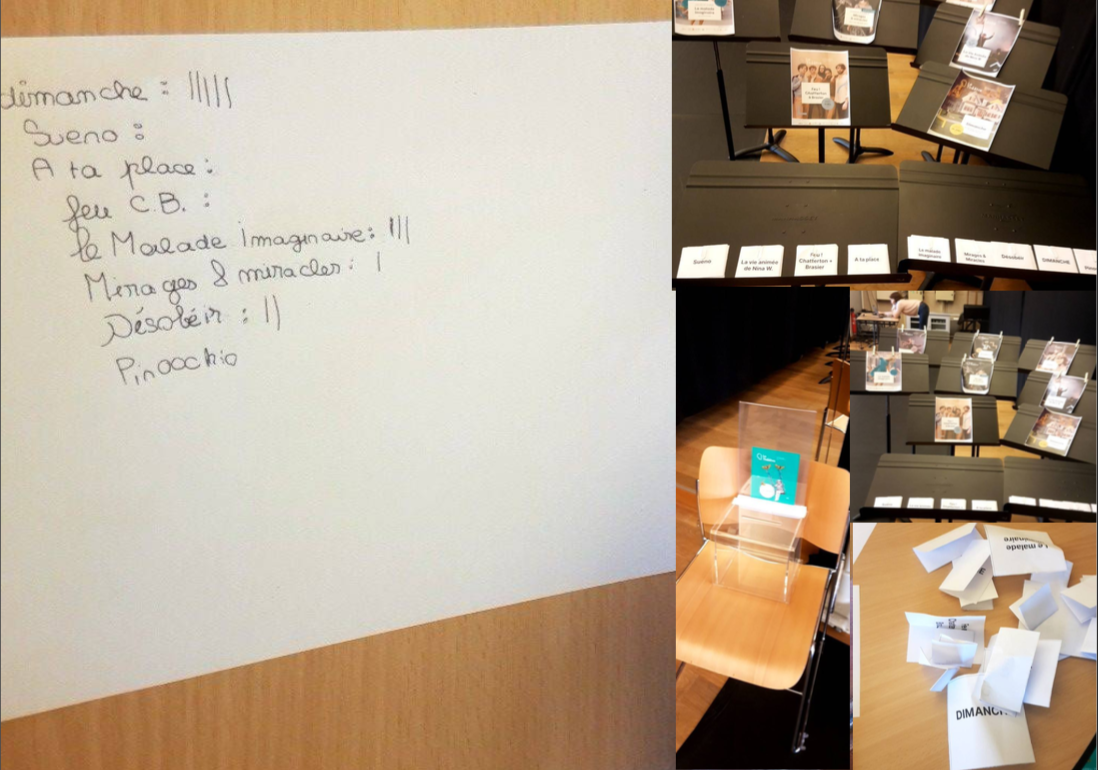 dimanche : |||||
Sueno :
A ta place :
feu C.B. :
le Malade Imaginaire : |||
Mirages & miracles : |
Désobéir : ||
Pinocchio
Le malade
imaginaire
Feu !
Chatterton +
Brasier
Sueño
La vie animée
de Nina W.
Feu !
Chatterton +
Brasier
A ta place
Le malade
imaginaire
Mirages &
Miracles
Désobéir
DIMANCHE
Le malade
DIMANCH